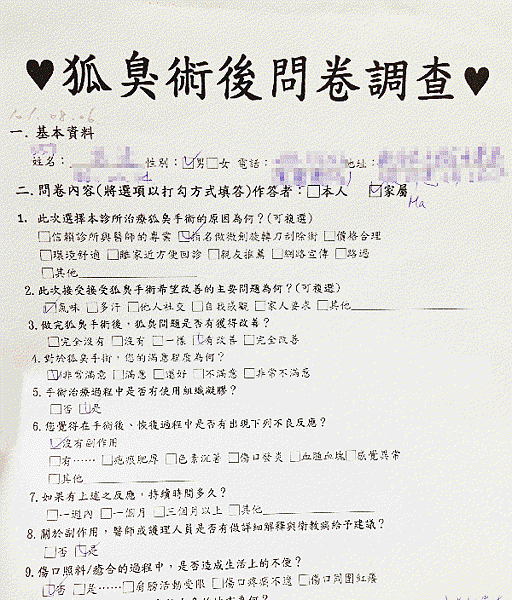 ♥狐臭術後問卷調查♥
101.08.06
一. 基本資料
姓名： 性別：☑男□女 電話： 地址：
二. 問卷內容(將選項以打勾方式填答)作答者：□本人 ☑家屬
Ma
1. 此次選擇本診所治療狐臭手術的原因為何？(可複選)
□信賴診所與醫師的專業 ☑指名做微創旋轉刀刮除術 □價格合理
□環境舒適 □離家近方便回診 □親友推薦 □網路宣傳 □路過
□其他
2. 此次接受接受狐臭手術希望改善的主要問題為何？(可複選)
☑氣味 □多汗 □他人社交 □自我感觀 □家人要求 □其他
3. 做完狐臭手術後，狐臭問題是否有獲得改善？
□完全沒有 □沒有 □一樣 ☑有改善 □完全改善
4. 對於狐臭手術，您的滿意程度為何？
☑非常滿意 □滿意 □還好 □不滿意 □非常不滿意
5. 手術治療過程中是否有使用組織凝膠？
□否 ☑是
6. 您覺得在手術後、恢復過程中是否有出現下列不良反應？
☑沒有副作用
□有…… □疤痕肥厚 □色素沉著 □傷口發炎 □血腫血塊 □感覺異常
□其他
7. 如果有上述之反應，持續時間多久？
□一週內 □一個月 □三個月以上 □其他
8. 關於副作用，醫師或護理人員是否有做詳細解釋與衛教病給予建議？
□否 ☑是
9. 傷口照料/癒合的過程中，是否造成生活上的不便？
☑否 □是……□肩膀活動受限 □傷口疼痛不適 □傷口周圍紅癢